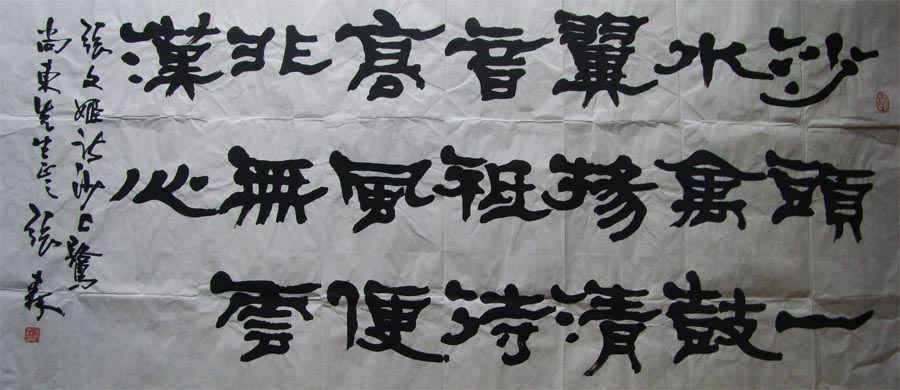 沙頭一
水禽鼓
翼揚清
音祗待
高風便
非無雲
漢心
張文姬詩沙上鷺
尚東先生正之 張森